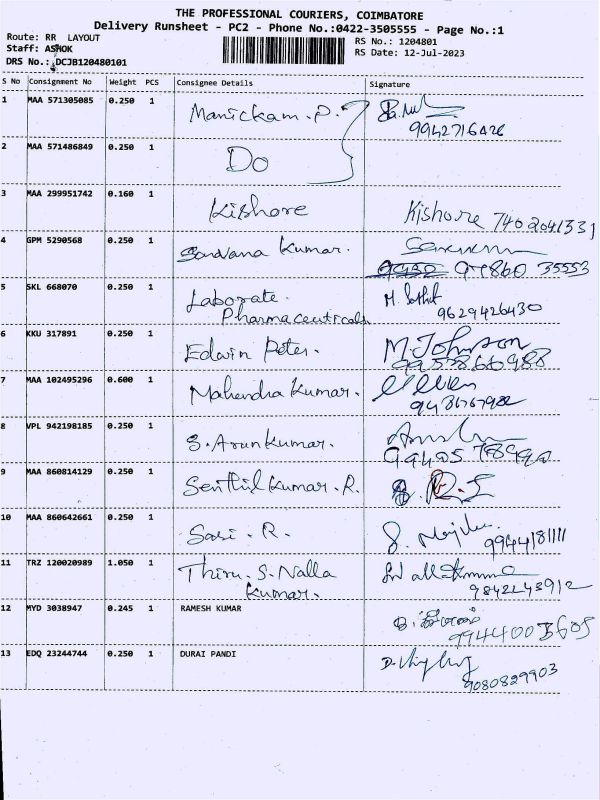 THE PROFESSIONAL COURIERS, COIMBATORE
Delivery Runsheet - PC2 - Phone No.:0422-3505555 - Page No.:1
Route: RR LAYOUT
RS No.: 1204801
Staff: ASHOK
RS Date: 12-Jul-2023
DRS No.: DCJB120480101
S No Consignment No Weight PCS Consignee Details Signature
1 MAA 571305085 0.250 1 Manickam . P.
9942716426
2 MAA 571486849 0.250 1 Do
3 MAA 299951742 0.160 1 Kishore Kishore 7402041331
4 GPM 5290568 0.250 1 Saravana Kumar.
97860 35553
5 SKL 668070 0.250 1 Laborate. M.
Pharmaceuticals 9629426430
6 KKU 317891 0.250 1 Edwin Peter. M. Johnson
7 MAA 102495296 0.600 1 Mahendra Kumar.
8 VPL 942198185 0.250 1 S. Arun Kumar.
9 MAA 860814129 0.250 1 Senthil Kumar . R.
10 MAA 860642661 0.250 1 Sasi . R.
9944181111
11 TRZ 120020989 1.050 1 Thiru. S. Nalla
Kumar. 9842243912
12 MYD 3038947 0.245 1 RAMESH KUMAR
9944003605
13 EDQ 23244744 0.250 1 DURAI PANDI
9080829903